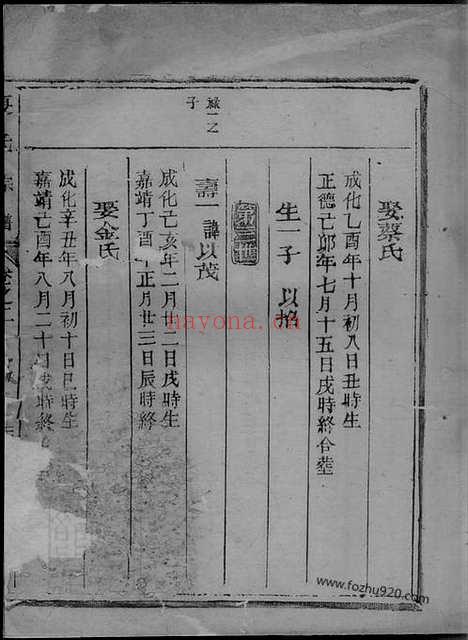 娶蔡氏
成化乙酉年十月初八日丑時生
正德己卯年七月十五日戌時終合塟
生一子 以
第三世
祿一之
子
壽一諱以茂
成化己亥年二月廿二日戌時生
嘉靖丁酉年正月廿三日辰時終
娶金氏
成化辛丑年八月初十日巳時生
嘉靖己酉年八月二十 日戌時終
宗譜
nayona.cn
www.fozhu920.com